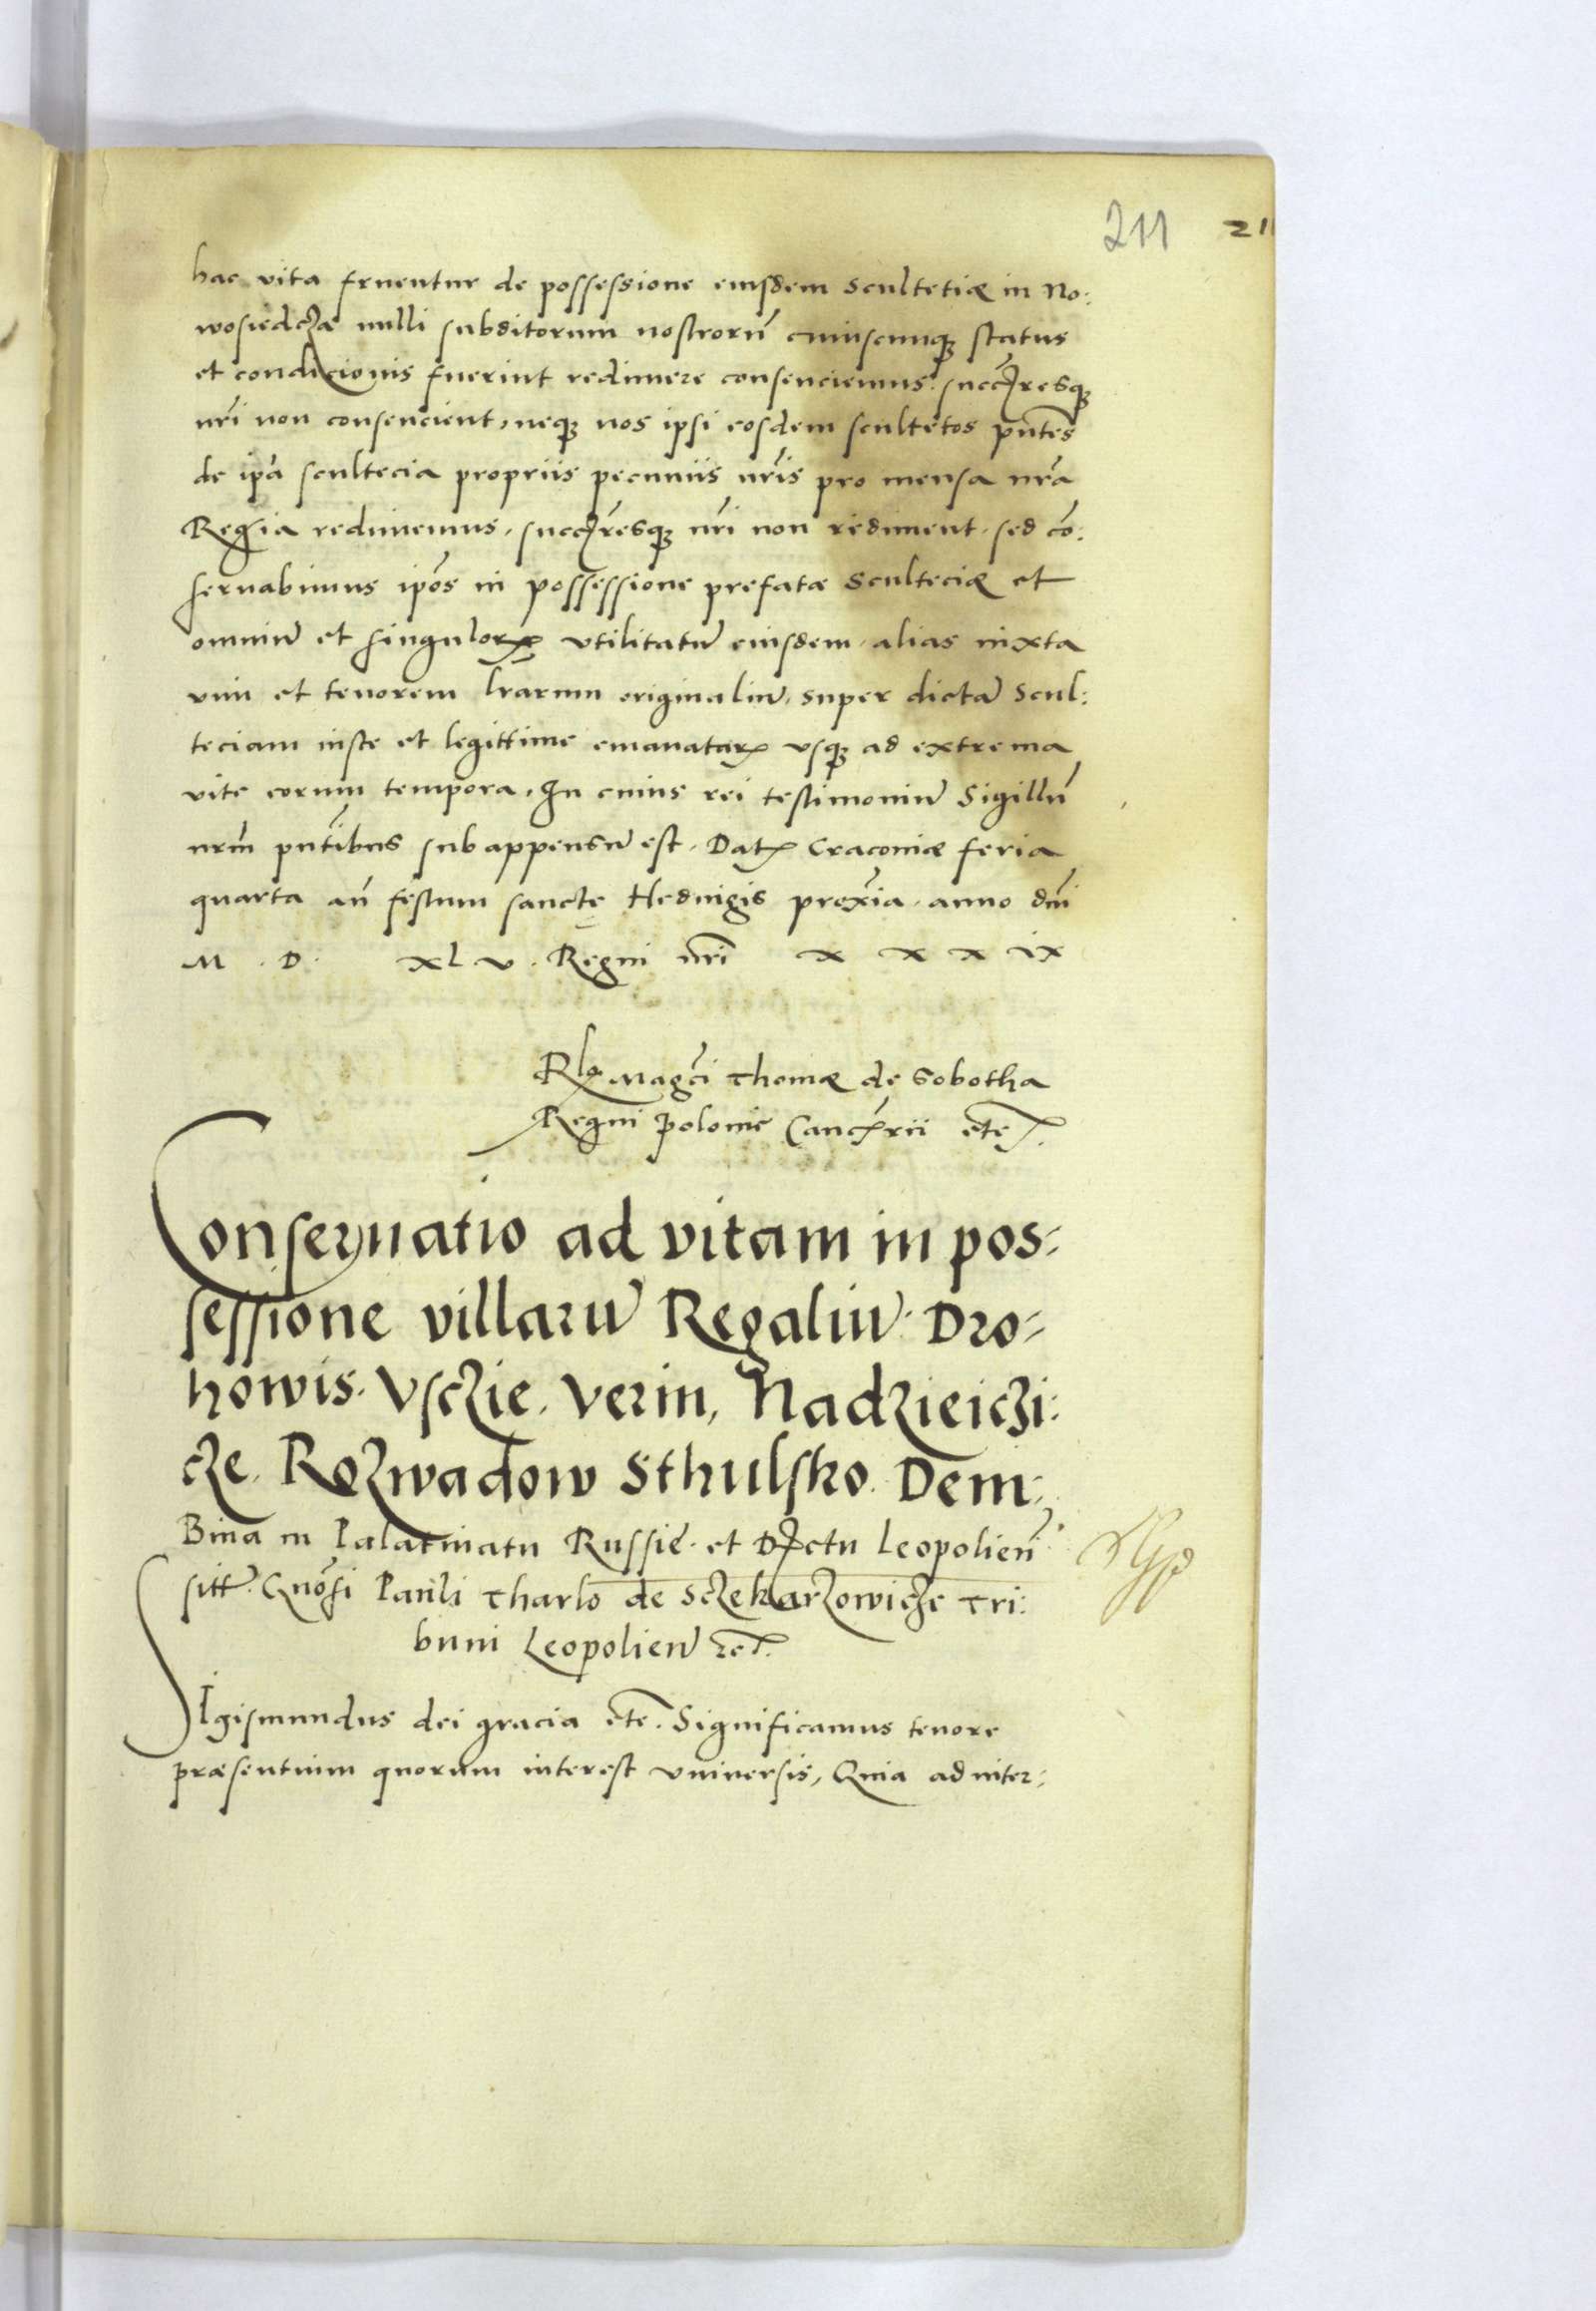 211 21
hac vita fruentur de possessione eiusdem scultetiæ in No:
wosiedcze nulli subditorum nostrorũ cuiuscunqꝫ status
et condicionis fuerint redimere consenciemus. succ̃resqꝫ
nr̃i non consencient, neqꝫ nos ipsi eosdem scultetos pñtes
de ip̃a scultecia propriis pecuniis nr̃is pro mensa nr̃a
Regia redimemus, succ̃resqꝫ nr̃i non rediment, sed cõ:
seruabimus ip̃os in possessione prefatæ sculteciæ et
omniũ et singulorꝝ vtilitatũ eiusdem, alias iuxta
vim et tenorem lr̃arum originaliũ, super dictã Scul:
teciam iuste et legittime emanatarꝝ vsqꝫ ad extrema
vite eorum tempora. In cuius rei testimoniũ Sigillũ
nrm̃ pñtibus subappensũ est. Datꝫ Cracoviæ feria
quarta añ festum sanctę Heduigis proxĩa. anno dñi
M . D . XL v . Regni nr̃i x x x ix
Rlo Magc̃i Thomæ de Sobotha
Regni Polonie Canc̃rii etc.
Conseruatio ad vitam in pos:
sessione villarũ Regaliũ. Dro:
howis. Vsczie. Verin, Nadzieiczi:
cze. Rozwadow Sthulsko. Dem:
Bina in Palatinatu Russię. et Dr̃ctu Leopolieñ
sitt. Gnõsi Pauli Tharlo de Sczekarzowicze Tri:
buni Leopolieñ etc.
SIgismundus dei gracia etc̃. Significamus tenore
præsentium quorum interest vniversis, Quia ad inter: